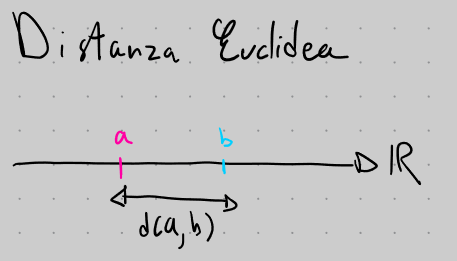 Distanza Euclidea
a b
ℝ
d(a,b)